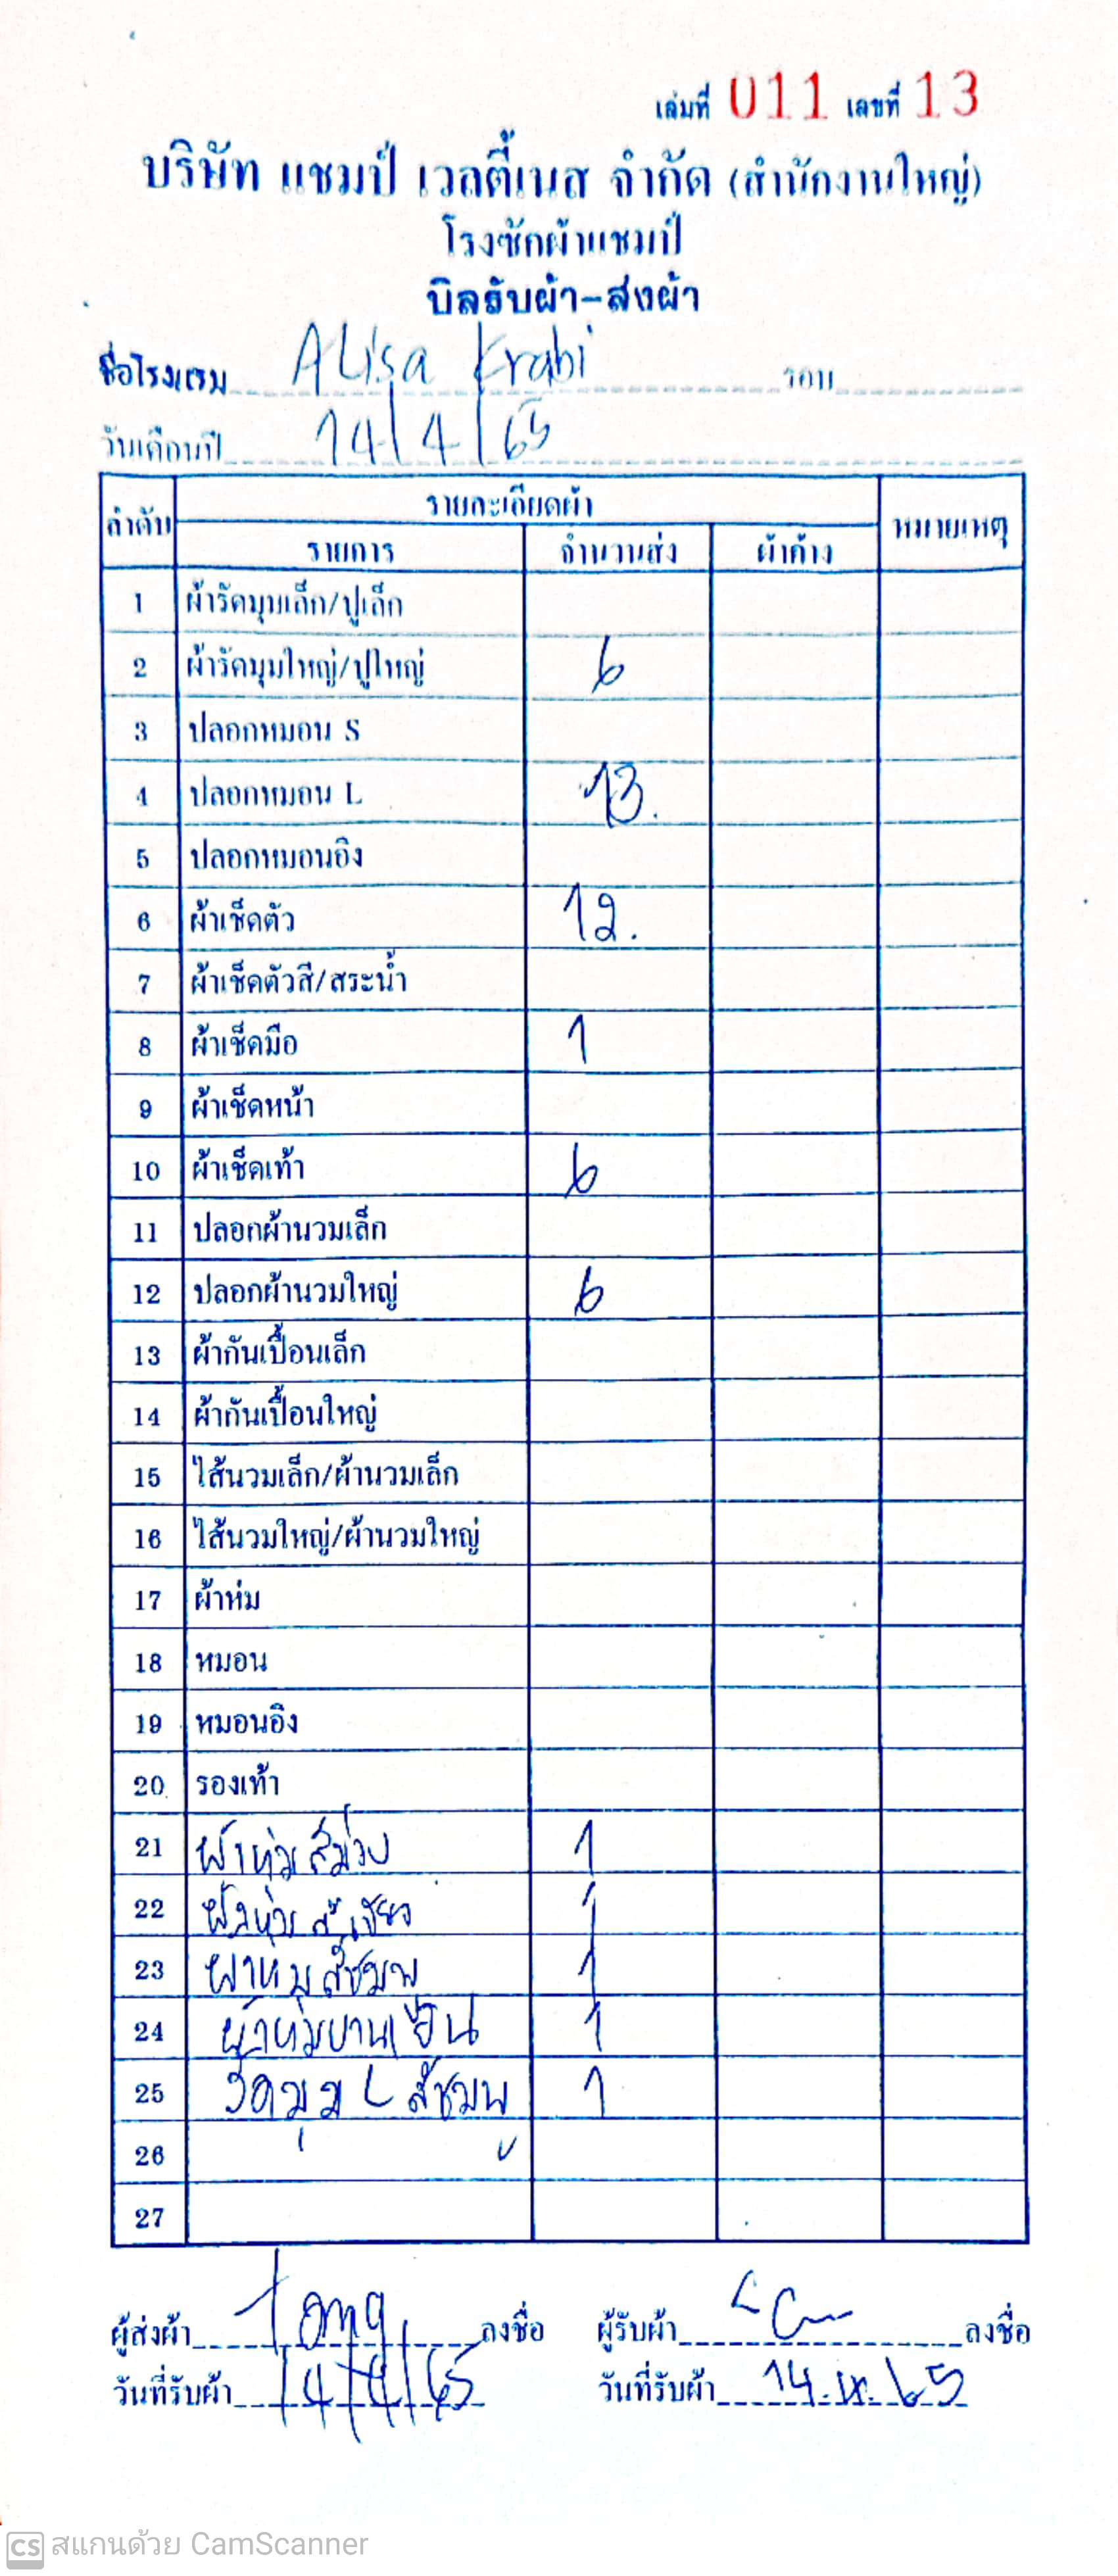 เล่มที่ 011 เลขที่ 13
บริษัท แชมป์ เวลตี้เนส จำกัด (สำนักงานใหญ่)
โรงซักผ้าแชมป์
บิลรับผ้า-ส่งผ้า
ชื่อโรงแรม Alisa Krabi รอบ
วันเดือนปี 14/4/65
ลำดับ รายละเอียดผ้า หมายเหตุ
รายการ จำนวนส่ง ผ้าค้าง
1 ผ้ารัดมุมเล็ก/ปูเล็ก
2 ผ้ารัดมุมใหญ่/ปูใหญ่ 6
3 ปลอกหมอน S
4 ปลอกหมอน L 13.
5 ปลอกหมอนอิง
6 ผ้าเช็ดตัว 12.
7 ผ้าเช็ดตัวสี/สระน้ำ
8 ผ้าเช็ดมือ 1
9 ผ้าเช็ดหน้า
10 ผ้าเช็ดเท้า 6
11 ปลอกผ้านวมเล็ก
12 ปลอกผ้านวมใหญ่ 6
13 ผ้ากันเปื้อนเล็ก
14 ผ้ากันเปื้อนใหญ่
15 ไส้นวมเล็ก/ผ้านวมเล็ก
16 ไส้นวมใหญ่/ผ้านวมใหญ่
17 ผ้าห่ม
18 หมอน
19 หมอนอิง
20 รองเท้า
21 ผ้าห่มสีม่วง 1
22 ผ้าห่มสีเขียว 1
23 ผ้าห่มสีชมพู 1
24 ผ้าห่ม 1
25 รัดมุม L สีชมพู 1
26
27
ผู้ส่งผ้า Tong ลงชื่อ ผู้รับผ้า ลงชื่อ
วันที่รับผ้า 14/4/65 วันที่รับผ้า 14.4.65
CS สแกนด้วย CamScanner